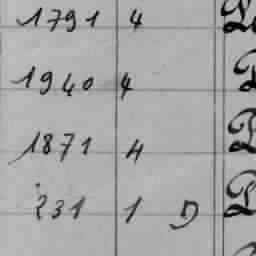 1791 4
1940 4
1871 4
231 1 D